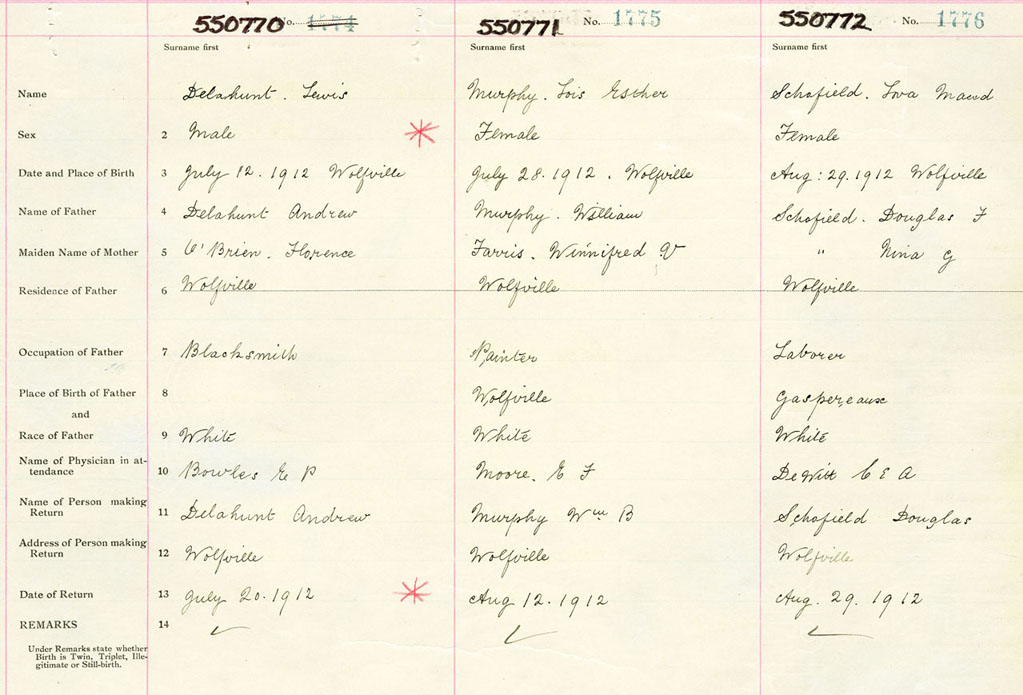 550770 No. 1774 550771 No. 1775 550772 No. 1776
Surname first Surname first Surname first
Name Delahunt. Lewis Murphy. Lois Esther Schofield. Iova Maud
Sex 2 Male Female Female
Date and Place of Birth 3 July 12. 1912 Wolfville July 28. 1912. Wolfville Aug: 29. 1912 Wolfville
Name of Father 4 Delahunt Andrew Murphy. William Schofield. Douglas F
Maiden Name of Mother 5 O'Brien. Florence Farris. Winnifred V " Nina G
Residence of Father 6 Wolfville Wolfville Wolfville
Occupation of Father 7 Blacksmith Painter Laborer
Place of Birth of Father 8 Wolfville Gaspereaux
and
Race of Father 9 White White White
Name of Physician in at-
tendance 10 Bowles E P Moore. E F DeWitt C E A
Name of Person making
Return 11 Delahunt Andrew Murphy Wm B Schofield Douglas
Address of Person making
Return 12 Wolfville Wolfville Wolfville
Date of Return 13 July 20. 1912 Aug 12. 1912 Aug. 29. 1912
REMARKS 14
Under Remarks state whether
Birth is Twin, Triplet, Ille-
gitimate or Still-birth.